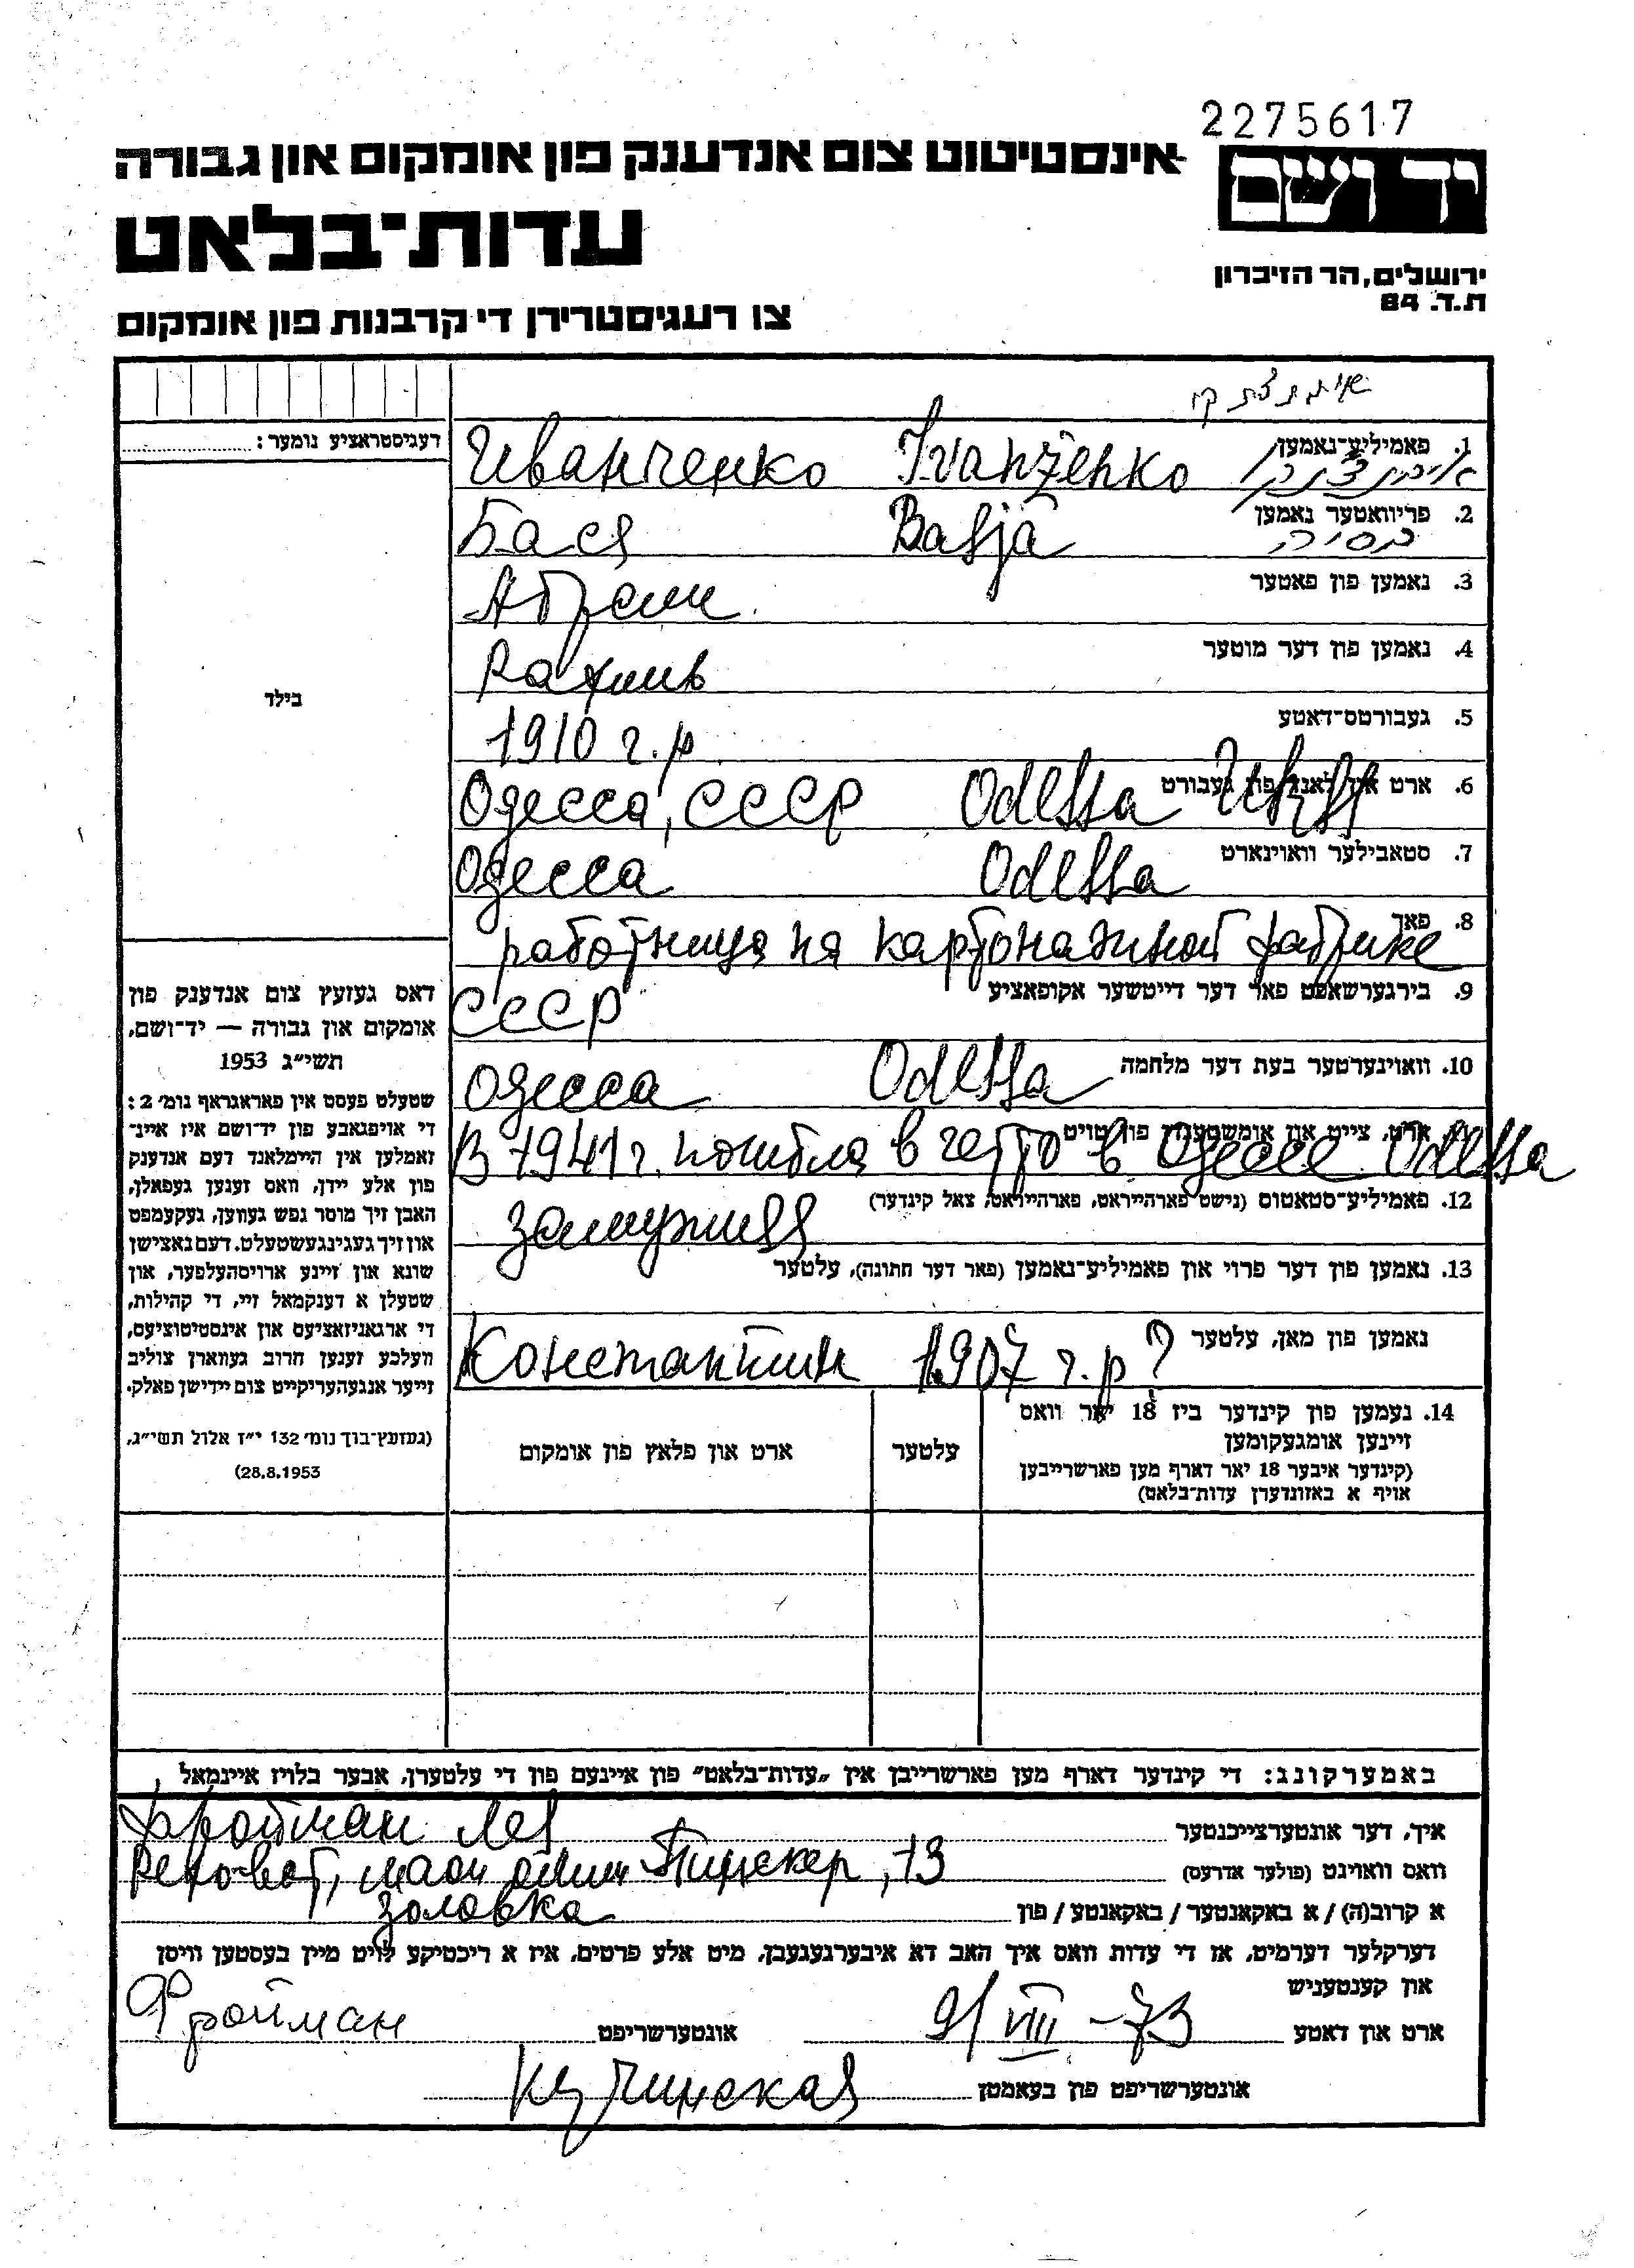 2275617
אינסטיטוט צום אנדענק פון אומקום און גבורה
יד ושם
עדות־בלאט
ירושלים, הר הזיכרון
ת.ד. 84
צו רעגיסטרירן די קרבנות פון אומקום
רעגיסטראציע נומער:
1. פאמיליע־נאמען
Иванченко Ivanženko
2. פריוואטער נאמען
Бася Basja בסיה
3. נאמען פון פאטער
Абрам
4. נאמען פון דער מוטער
Рахиль
5. געבורטס־דאטע
1910 г.р
6. ארט און לאנד פון געבורט
Одесса, СССР Odessa
7. סטאבילער וואוינארט
Одесса Odessa
8. פאך
работница на картонажной фабрике
9. בירגערשאפט פאר דער דייטשער אקופאציע
СССР
10. וואוינערטער בעת דער מלחמה
Одесса Odessa
ארט, צייט און אומשטענדן פון טויט
В 1941 г. погибла в гетто в Одессе Odessa
12. פאמיליע־סטאטוס (נישט פארהייראט, פארהייראט, צאל קינדער)
замужняя
13. נאמען פון דער פרוי און פאמיליע־נאמען (פאר דער חתונה), עלטער
נאמען פון מאן, עלטער
Константин 1907 г.р ?
14. נעמען פון קינדער ביז 18 יאר וואס
זיינען אומגעקומען
(קינדער איבער 18 יאר דארף מען פארשרייבן
אויף א באזונדערן עדות־בלאט)
עלטער
ארט און פלאץ פון אומקום
בילד
דאס געזעץ צום אנדענק פון
אומקום און גבורה — יד־ושם,
תשי״ג 1953
שטעלט פעסט אין פאראגראף נומ׳ 2:
די אויפגאבע פון יד־ושם איז איינ־
זאמלען אין היימלאנד דעם אנדענק
פון אלע יידן, וואס זענען געפאלן,
האבן זיך מוסר נפש געווען, געקעמפט
און זיך געגינגעשטעלט. דעם נאצישן
שונא און זיינע ארויסהעלפער, און
שטעלן א דענקמאל זיי, די קהילות,
די ארגאניזאציעס און אינסטיטוציעס,
וועלכע זענען חרוב געווארן צוליב
זייער אנגעהעריקייט צום יידישן פאלק.
(געזעץ־בוך נומ׳ 132 י״ז אלול תשי״ג,
28.8.1953)
באמערקונג: די קינדער דארף מען פארשרייבן אין „עדות־בלאט” פון איינעם פון די עלטערן, אבער בלויז איינמאל
איך, דער אונטערצייכנטער
Фройман Лея
וואס וואוינט (פולער אדרעס)
Реховот, маон олим Пинскер, 13
א קרוב(ה) / א באקאנטער / באקאנטע / פון
золовка
דערקלער דערמיט, אז די עדות וואס איך האב דא איבערגעגעבן, מיט אלע פרטים, איז א ריכטיקע לויט מיין בעסטען וויסן
און קענטעניש
ארט און דאטע 9/VIII-73 אונטערשריפט Фройман
אונטערשריפט פון באאמטן Кучинская